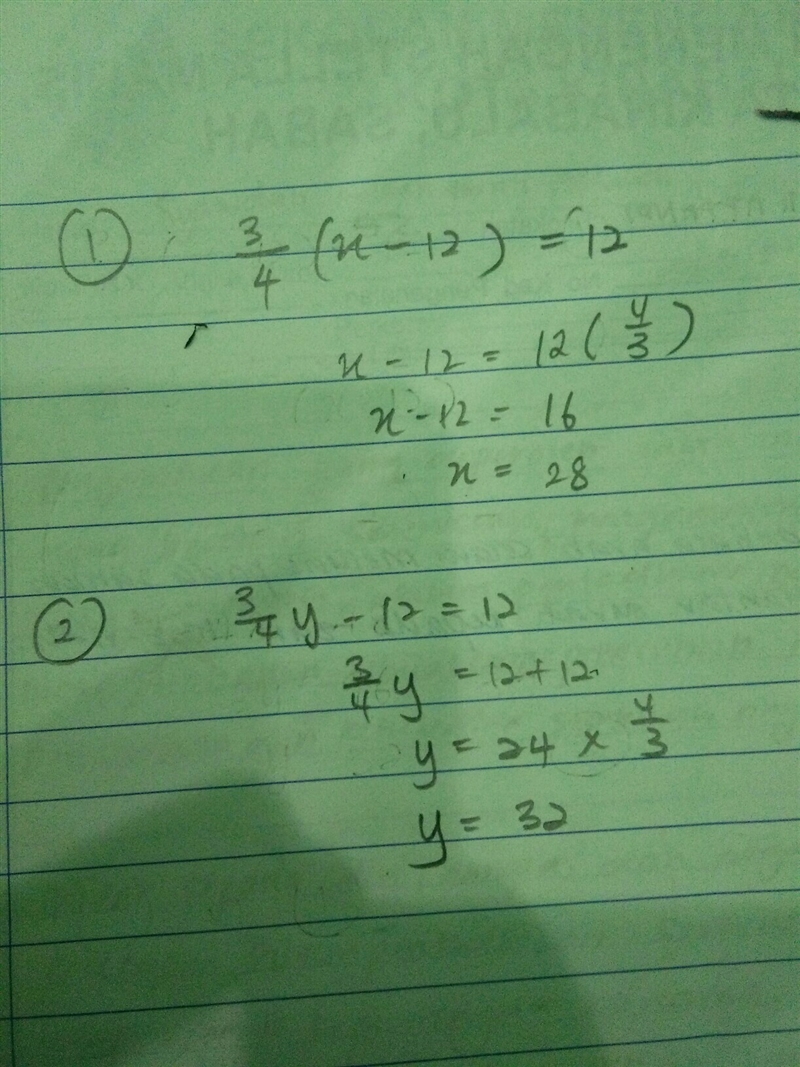 1 3/4 (x - 12) = 12
x - 12 = 12 ( 4/3 )
x - 12 = 16
x = 28
2 3/4 y - 12 = 12
3/4 y = 12 + 12
y = 24 × 4/3
y = 32